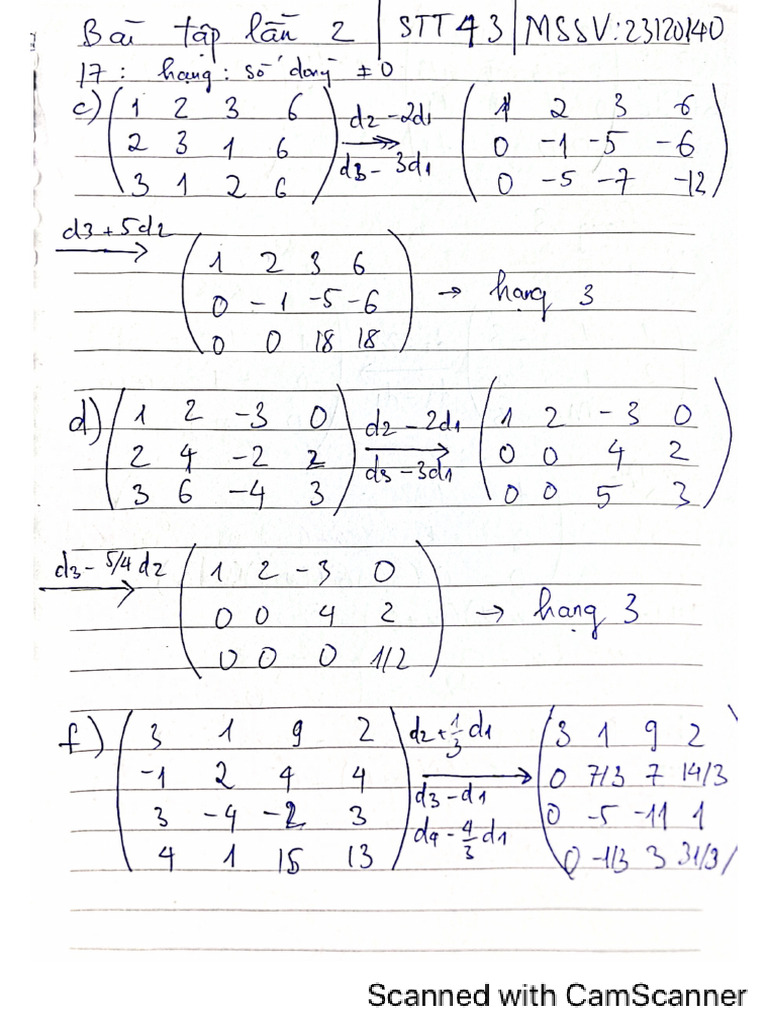 Bài tập lần 2 | STT 43 | MSSV: 23120140
17: hạng: số dòng ≠ 0
c) (1 2 3 6 / 2 3 1 6 / 3 1 2 6) d2 - 2d1 / d3 - 3d1 → (1 2 3 6 / 0 -1 -5 -6 / 0 -5 -7 -12)
d3 + 5d2 → (1 2 3 6 / 0 -1 -5 -6 / 0 0 18 18) → hạng 3
d) (1 2 -3 0 / 2 4 -2 2 / 3 6 -4 3) d2 - 2d1 / d3 - 3d1 → (1 2 -3 0 / 0 0 4 2 / 0 0 5 3)
d3 - 5/4 d2 → (1 2 -3 0 / 0 0 4 2 / 0 0 0 1/2) → hạng 3
f) (3 1 9 2 / -1 2 4 4 / 3 -4 -2 3 / 4 1 15 13) d2 + 1/3 d1 / d3 - d1 / d4 - 4/3 d1 → (3 1 9 2 / 0 7/3 7 14/3 / 0 -5 -11 1 / 0 -1/3 3 31/3)
Scanned with CamScanner